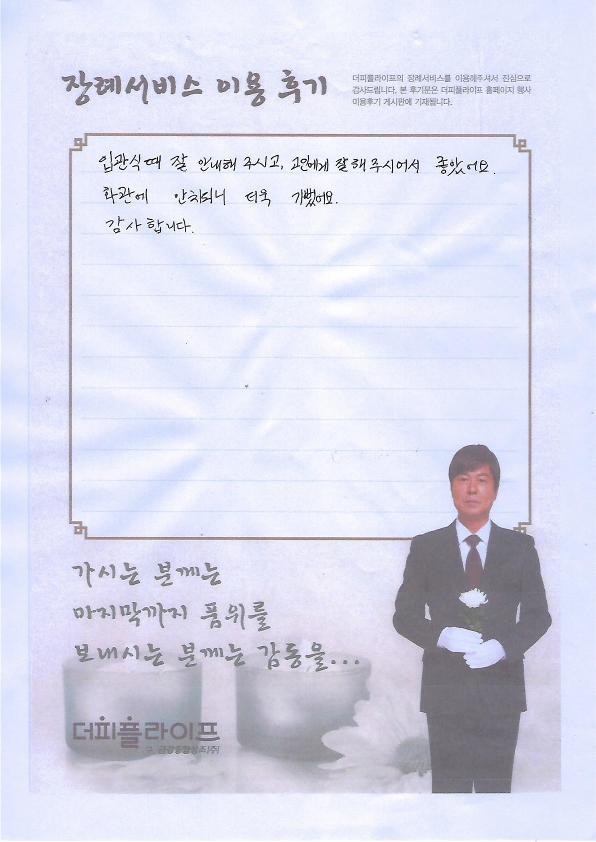 장례서비스 이용 후기
더피플라이프의 장례서비스를 이용해주셔서 진심으로
감사드립니다. 본 후기문은 더피플라이프 홈페이지 행사
이용후기 게시판에 기재됩니다.
입관식때 잘 안내해 주시고, 고인에게 잘 해 주시어서 좋았어요.
화관에 안치되니 더욱 기뻤어요.
감사 합니다.
가시는 분께는
마지막까지 품위를
보내시는 분께는 감동을...
더피플라이프
구. 금강종합상조(주)